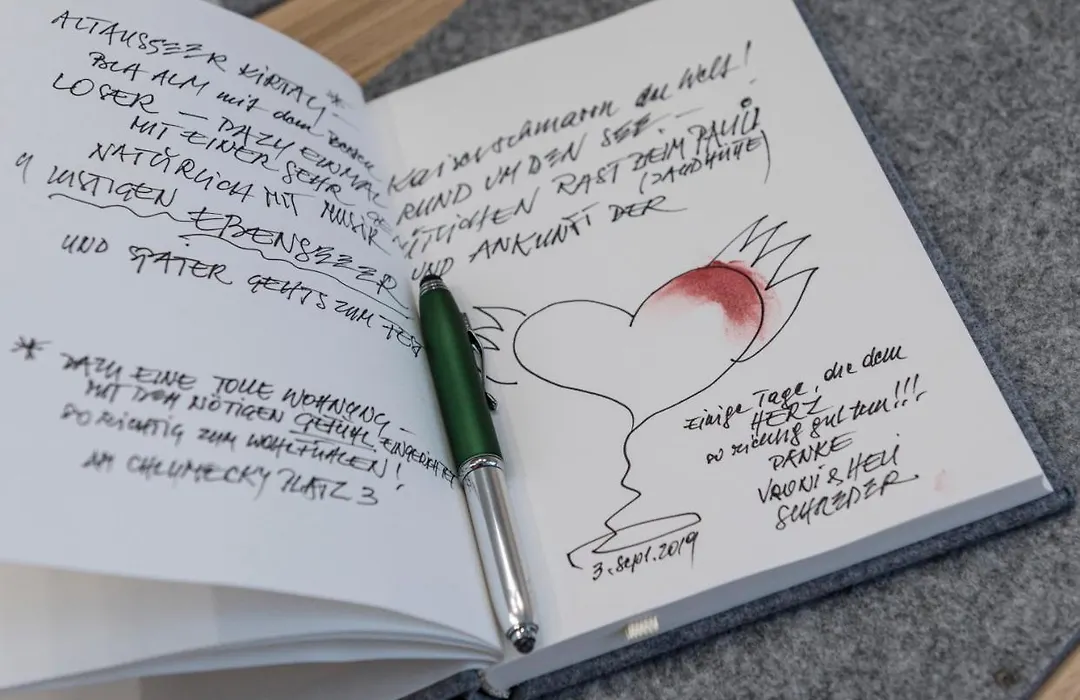 ALTAUSSEER KIRTAG —*
BLA ALM mit dem besten Kaiserschmarrn der Welt!
LOSER — DAZU EINMAL RUND UM DEN SEE. —
MIT EINER SEHR GEMÜTLICHEN RAST BEIM PAULI
(JAGDHÜTTE)
NATÜRLICH MIT MUSIK UND ANKUNFT DER
4 LUSTIGEN EBENSEEER
UND SPÄTER GEHTS ZUM FEST
* DAZU EINE TOLLE WOHNUNG —
MIT DEM NÖTIGEN GEFÜHL EINGERICHTET
SO RICHTIG ZUM WOHLFÜHLEN!
AM CHLUMECKY PLATZ 3
Einige Tage, die dem
HERZ
so richtig gut tun!!!
DANKE
VRONI & HELI
SCHREDER
3. Sept. 2019